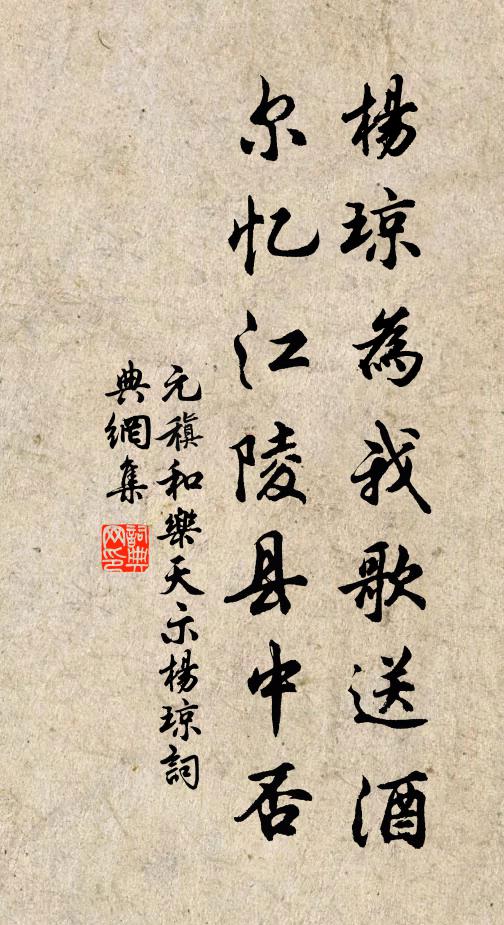 楊琼為我歌送酒
尔忆江陵县中否
元稹和樂天示楊琼詞
典網集
詞典網印